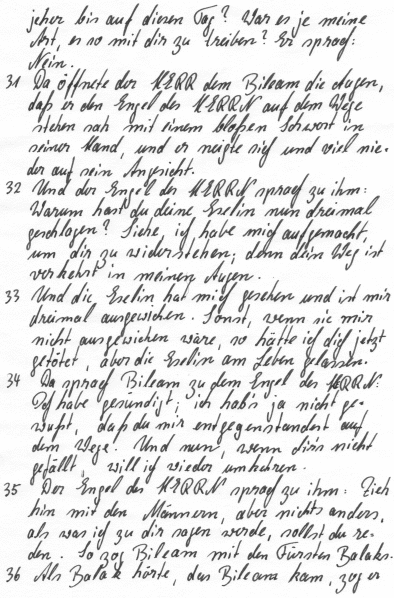 jeher bis auf diesen Tag? War es je meine
Art, es so mit dir zu treiben? Er sprach:
Nein.
31 Da öffnete der HERR dem Bileam die Augen,
daß er den Engel des HERRN auf dem Wege
stehen sah mit einem bloßen Schwert in
seiner Hand, und er neigte sich und viel nie-
der auf sein Angesicht.
32 Und der Engel des HERRN sprach zu ihm:
Warum hast du deine Eselin nun dreimal
geschlagen? Siehe, ich habe mich aufgemacht,
um dir zu widerstehen; denn dein Weg ist
verkehrt in meinen Augen.
33 Und die Eselin hat mich gesehen und ist mir
dreimal ausgewichen. Sonst, wenn sie mir
nicht ausgewichen wäre, so hätte ich dich jetzt
getötet, aber die Eselin am Leben gelassen.
34 Da sprach Bileam zu dem Engel des HERRN:
Ich habe gesündigt; ich hab's ja nicht ge-
wußt, daß du mir entgegenstandest auf
dem Wege. Und nun, wenn dir's nicht
gefällt, will ich wieder umkehren.
35 Der Engel des HERRN sprach zu ihm: Zieh
hin mit den Männern, aber nichts anders,
als was ich zu dir sagen werde, sollst du re-
den. So zog Bileam mit den Fürsten Balaks.
36 Als Balak hörte, das Bileam kam, zog er